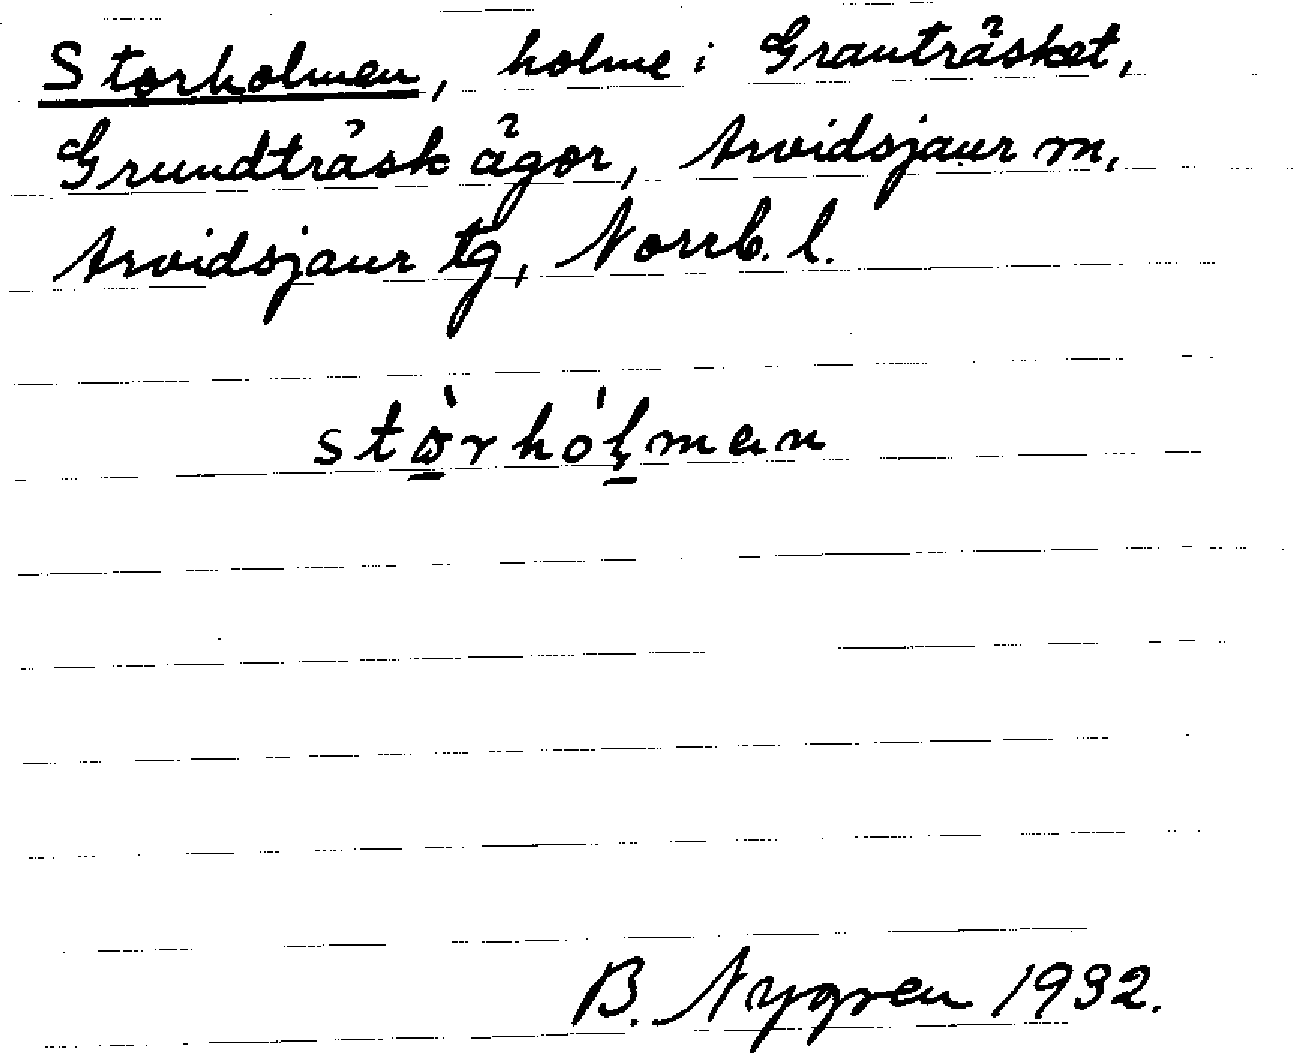 Storholmen, holme i Granträsket,
Grundträsk ägor, Arvidsjaur m,
Arvidsjaur tg, Norrb. l.
stòrhólman
B. Nygren 1932.